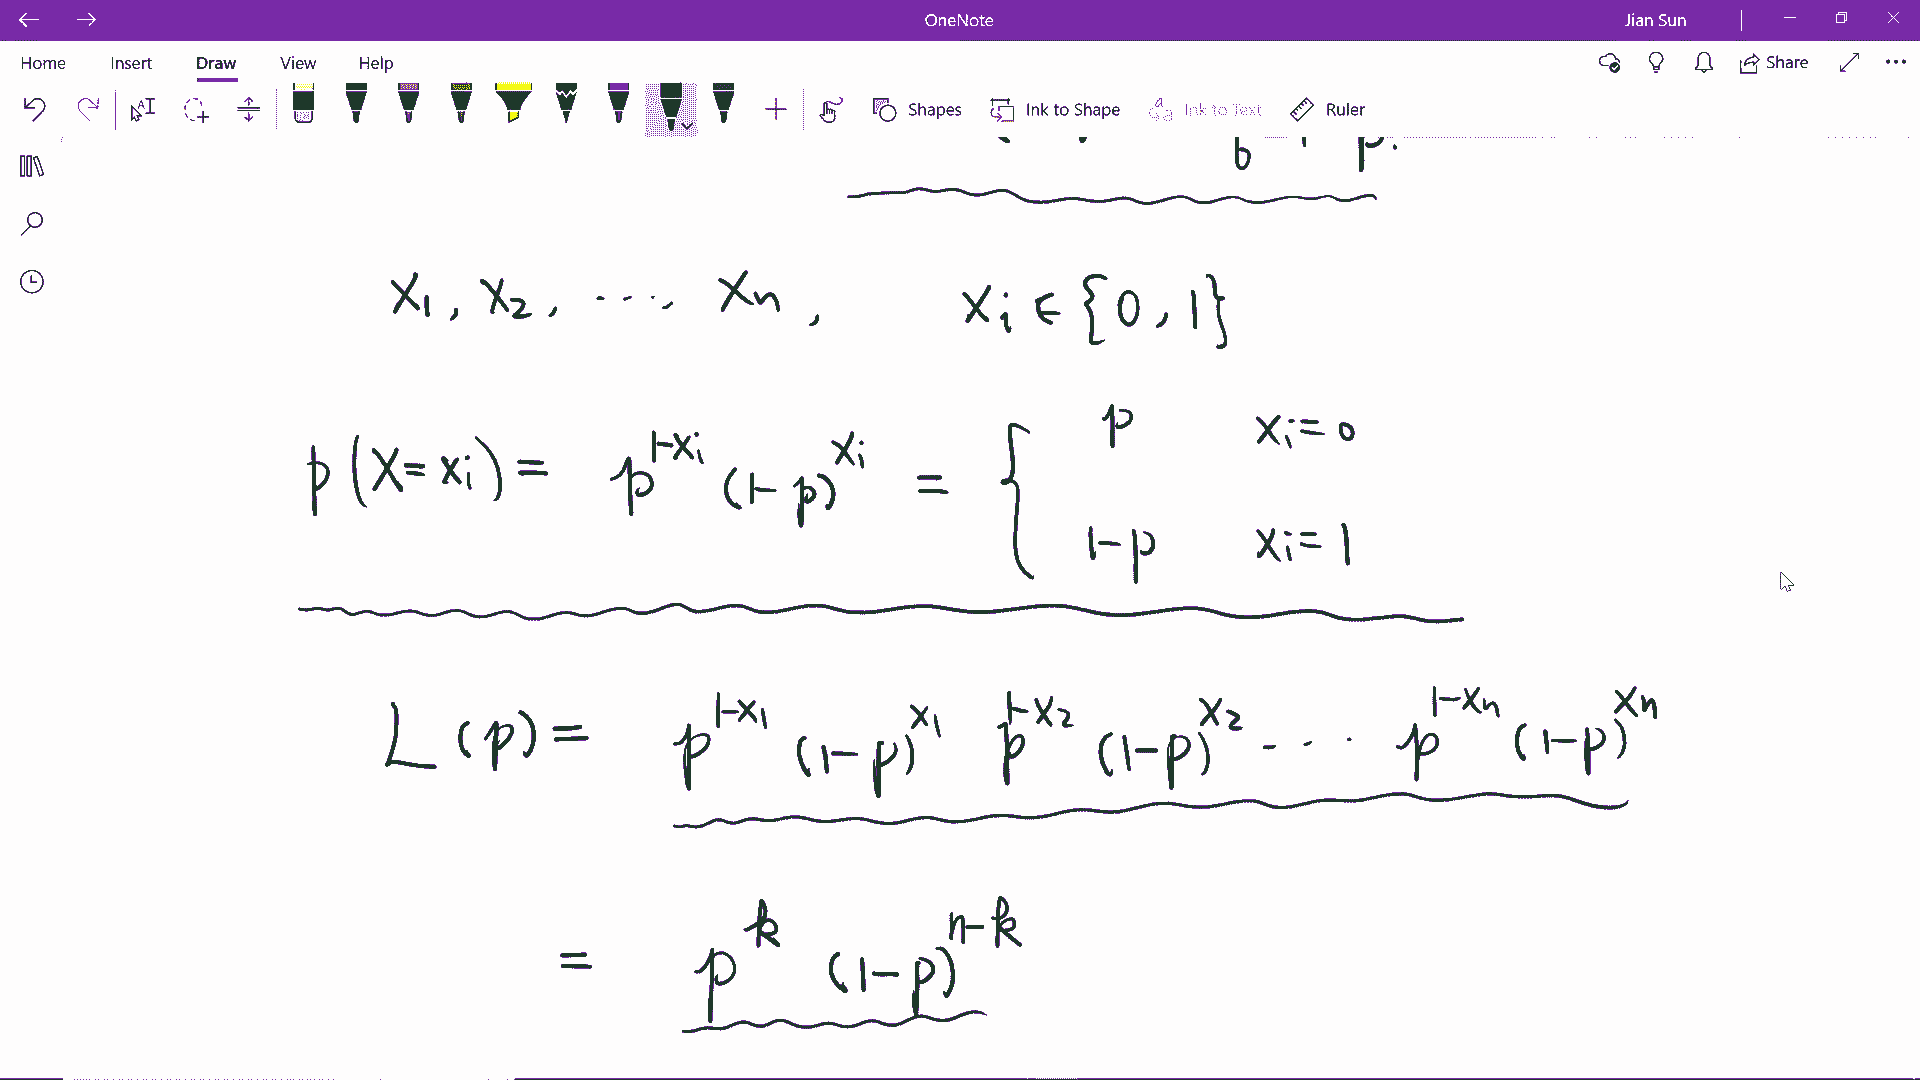 OneNote
Jian Sun
Home Insert Draw View Help
Share
Shapes Ink to Shape Ink to Text Ruler
p.
x₁, x₂, ..., xₙ, xᵢ ∈ {0, 1}
p(X = xᵢ) = p^(1-xᵢ) (1-p)^(xᵢ) = { p xᵢ = 0
1-p xᵢ = 1
L(p) = p^(1-x₁) (1-p)^(x₁) p^(1-x₂) (1-p)^(x₂) ... p^(1-xₙ) (1-p)^(xₙ)
= p^k (1-p)^(n-k)